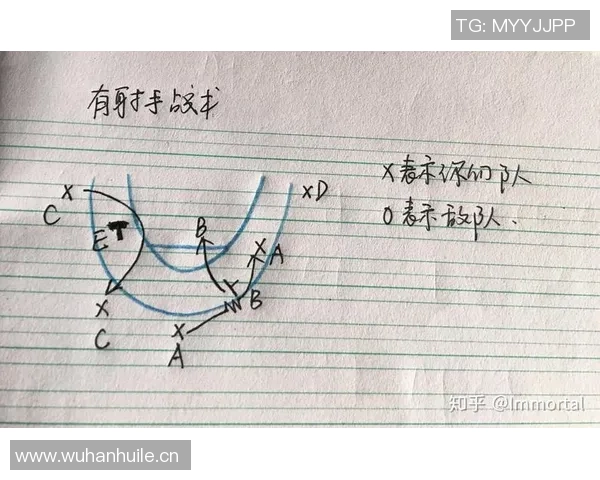 TG: MYYJJPP
有射手战术
X表示你的队
O表示敌队.
X
C
E
T
B
X
A
X D
B
X
C
X
A
知乎 @Immortal
www.wuhanhuile.cn